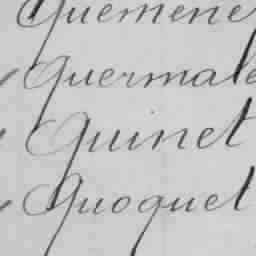 Quemene
Quermale
Quinet
Quoquet